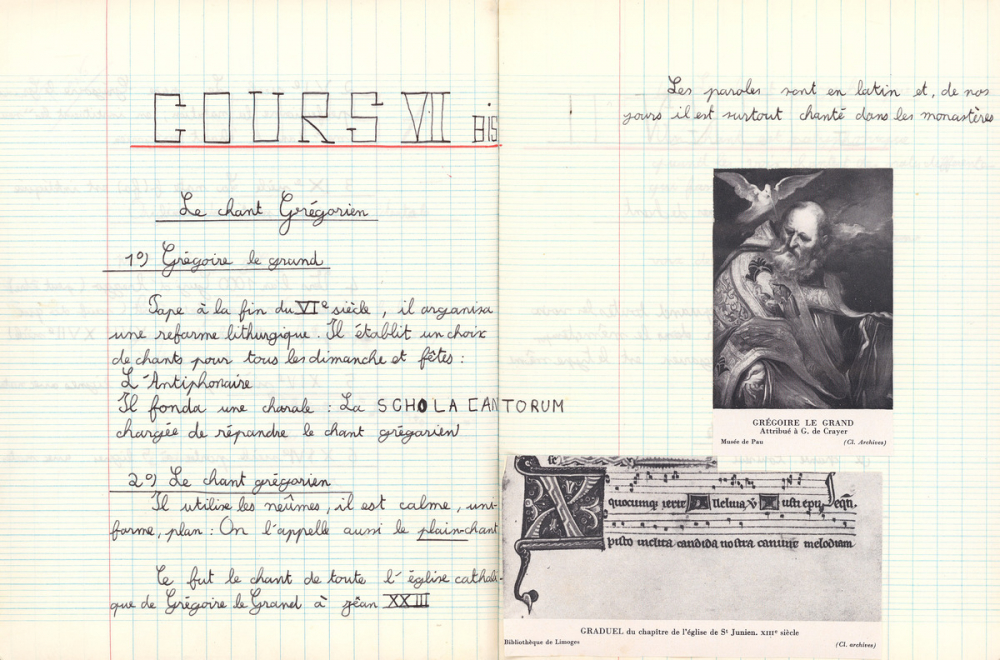 COURS VII BIS
Le chant Grégorien
1º) Grégoire le grand
Pape à la fin du VIe siècle, il organisa
une reforme lithurgique. Il établit un choix
de chants pour tous les dimanche et fêtes :
L'Antiphonaire
Il fonda une chorale : La SCHOLA CANTORUM
chargée de répandre le chant grégorien
2º) Le chant grégorien
Il utilise les neûmes, il est calme, uni-
forme, plan : On l'appelle aussi le plain-chant
Ce fut le chant de toute l'église catholi-
que de Grégoire le Grand à jêan XXIII
Les paroles sont en latin et, de nos
jours il est surtout chanté dans les monastères
GRÉGOIRE LE GRAND
Attribué à G. de Crayer
Musée de Pau (Cl. Archives)
quocumq; ierit Alleluia. ℣ Iusti epu
pisto inclita candida nostra canunt melodiam
GRADUEL du chapitre de l'église de St Junien. XIIIe siècle
Bibliothèque de Limoges (Cl. archives)